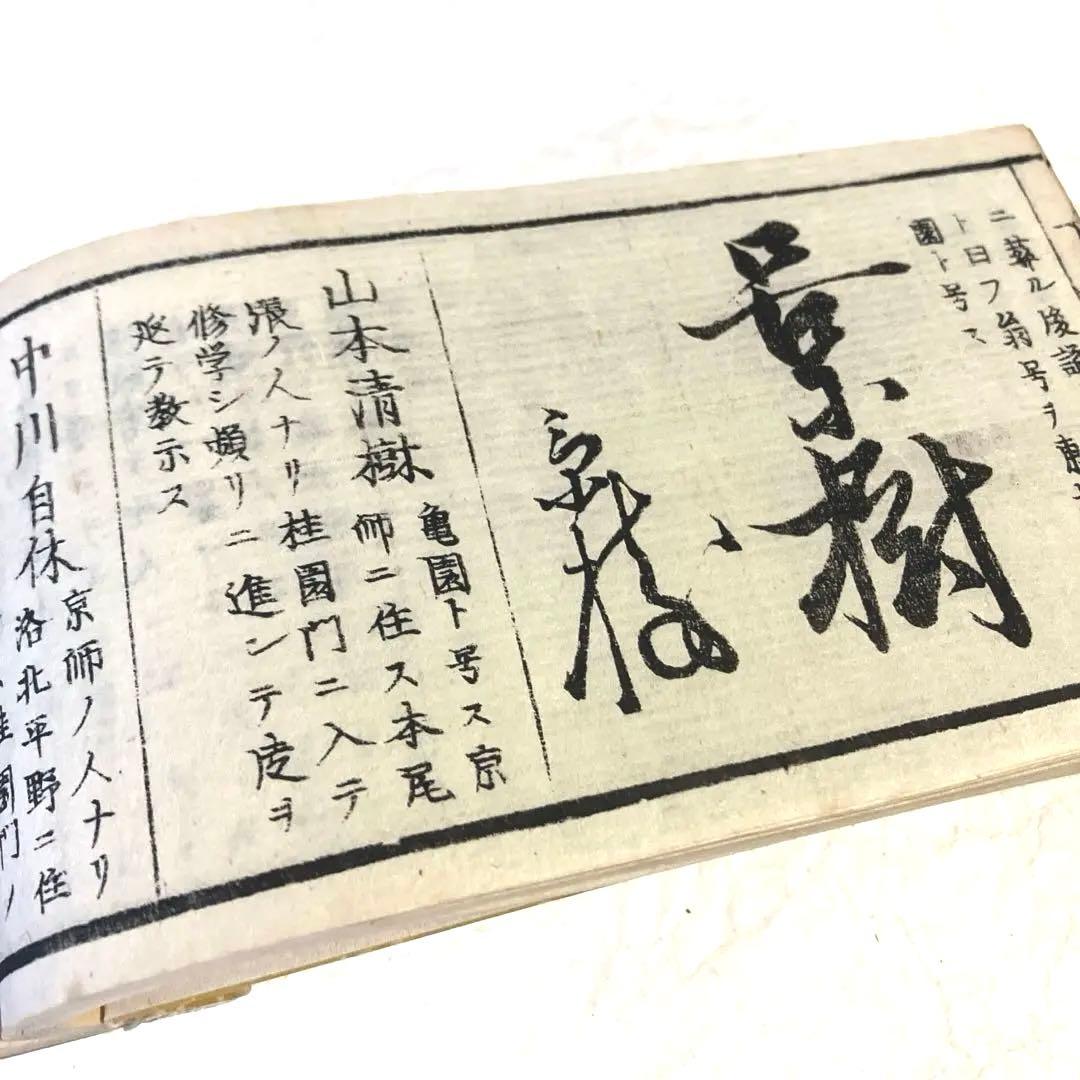 ニ葬ル後諡
ト曰フ翁号ヲ東
園ト号ス
景樹
景樹
山本清樹 亀園ト号ス京
師ニ住ス本尾
張ノ人ナリ桂園門ニ入テ
修学シ頻リニ進ンテ度ヲ
テ教示ス
中川自休 京師ノ人ナリ
洛北平野ニ住
桂園門ノ